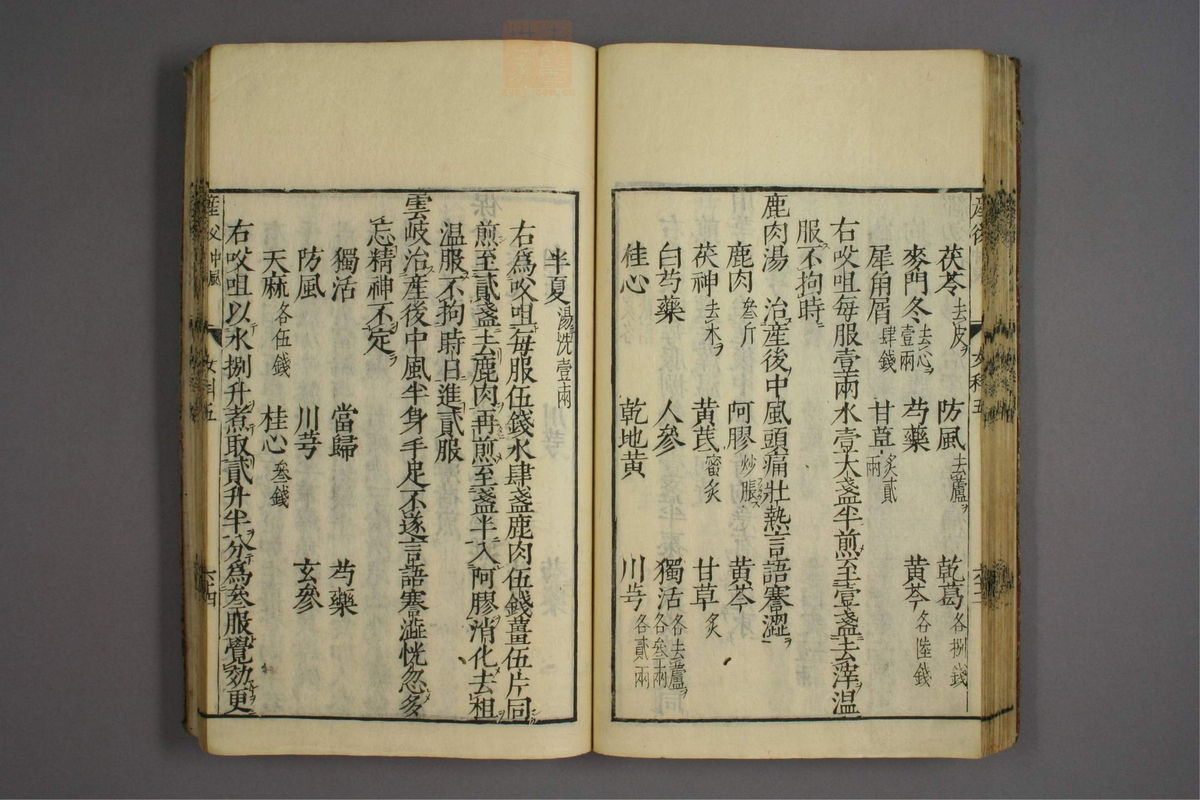 茯苓去皮 防風去蘆 乾葛各捌錢
麥門冬去心壹兩 芍藥 黃芩各陸錢
犀角屑肆錢 甘草炙貳兩
右㕮咀每服壹兩水壹大盞半煎至壹盞去滓温
服不拘時
鹿肉湯 治産後中風頭痛壯熱言語蹇澀
鹿肉叁斤 阿膠炒脹 黃芩
茯神去木 黃芪蜜炙 甘草炙
白芍藥 人參 獨活各去蘆各叁兩
桂心 乾地黃 川芎各貳兩
半夏湯洗壹兩
右爲㕮咀每服伍錢水肆盞鹿肉伍錢薑伍片同
煎至貳盞去鹿肉再煎至盞半入阿膠消化去粗
温服不拘時日進貳服
雲岐治産後中風半身手足不遂言語蹇澁恍忽多
忘精神不定
獨活 當歸 芍藥
防風 川芎 玄參
天麻各伍錢 桂心叁錢
右㕮咀以水捌升煮取貳升半分爲叁服覺効更
女科五